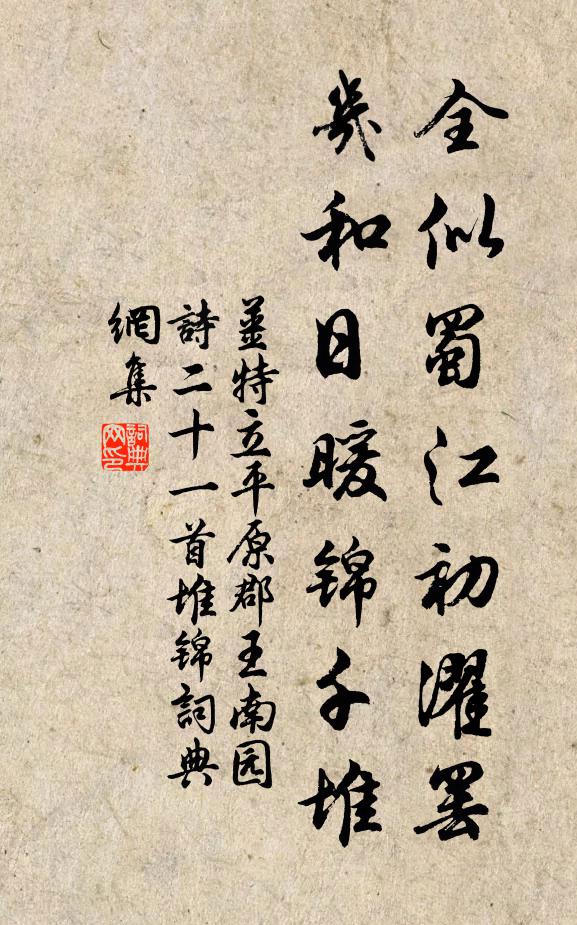 全似蜀江初濯罢
幾和日暖锦千堆
薑特立平原郡王南园
詩二十一首堆锦詞典
網集
詞典网印